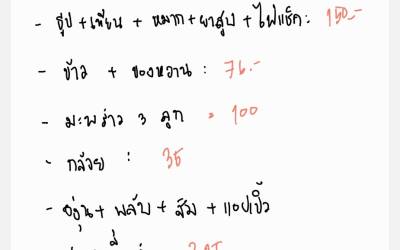 - ธูป + เทียน + หมาก + ยาสูบ + ไฟแช็ค : 150.-
- ข้าว + ของหวาน : 76.-
- มะพร้าว 3 ลูก = 100
- กล้วย : 35
- องุ่น + พลับ + ส้ม + แอปเปิ้ล